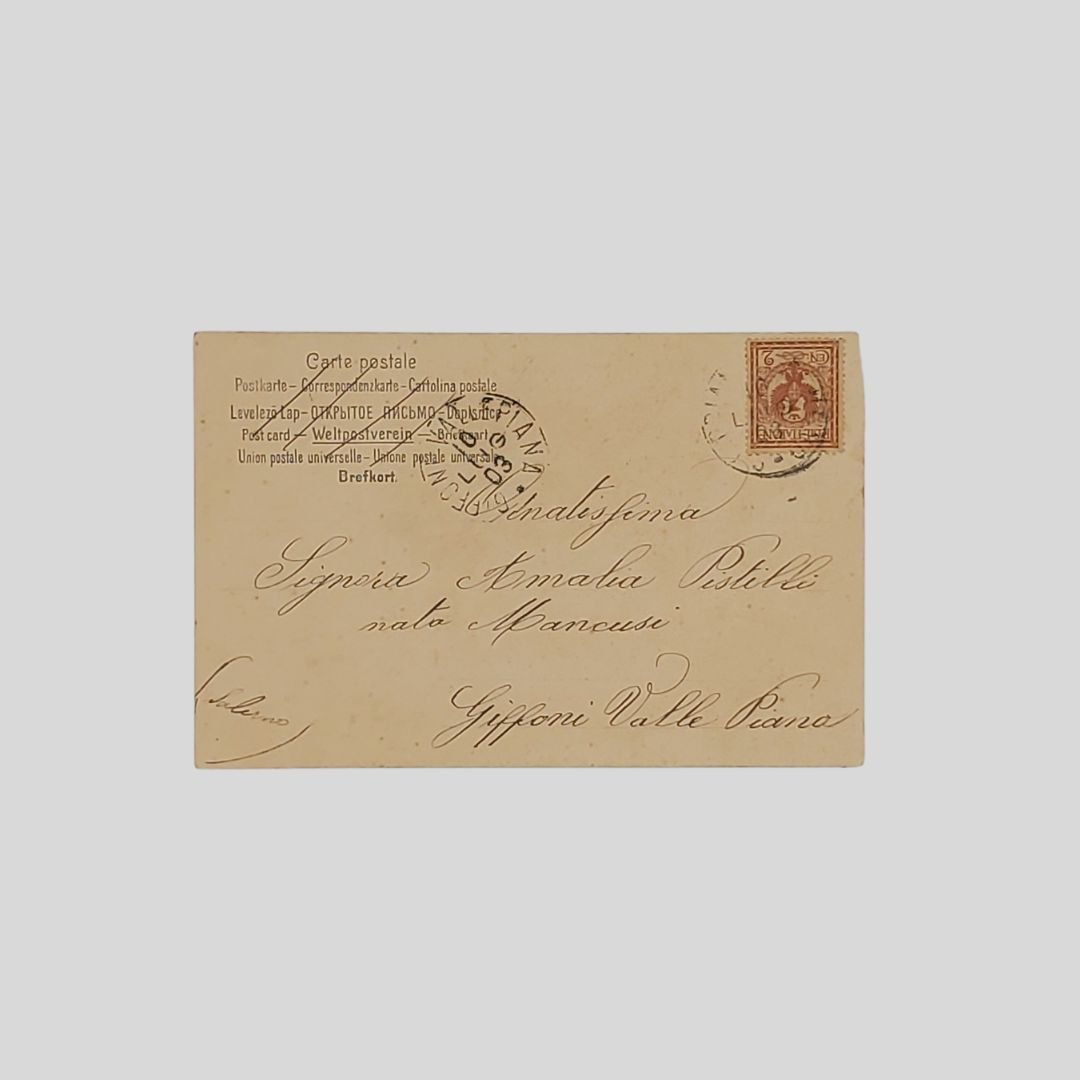 Carte postale
Postkarte – Correspondenzkarte – Cartolina postale
Levelező Lap – ОТКРЫТОЕ ПИСЬМО – Dopisnice
Post card – Weltpostverein – Briefkaart
Union postale universelle – Unione postale universale
Brefkort.
PIANA
10
03
CEN 2
POSTE ITALIANE
Signora Amalia Pistilli
nata Mancusi
Giffoni Valle Piana
(Salerno)